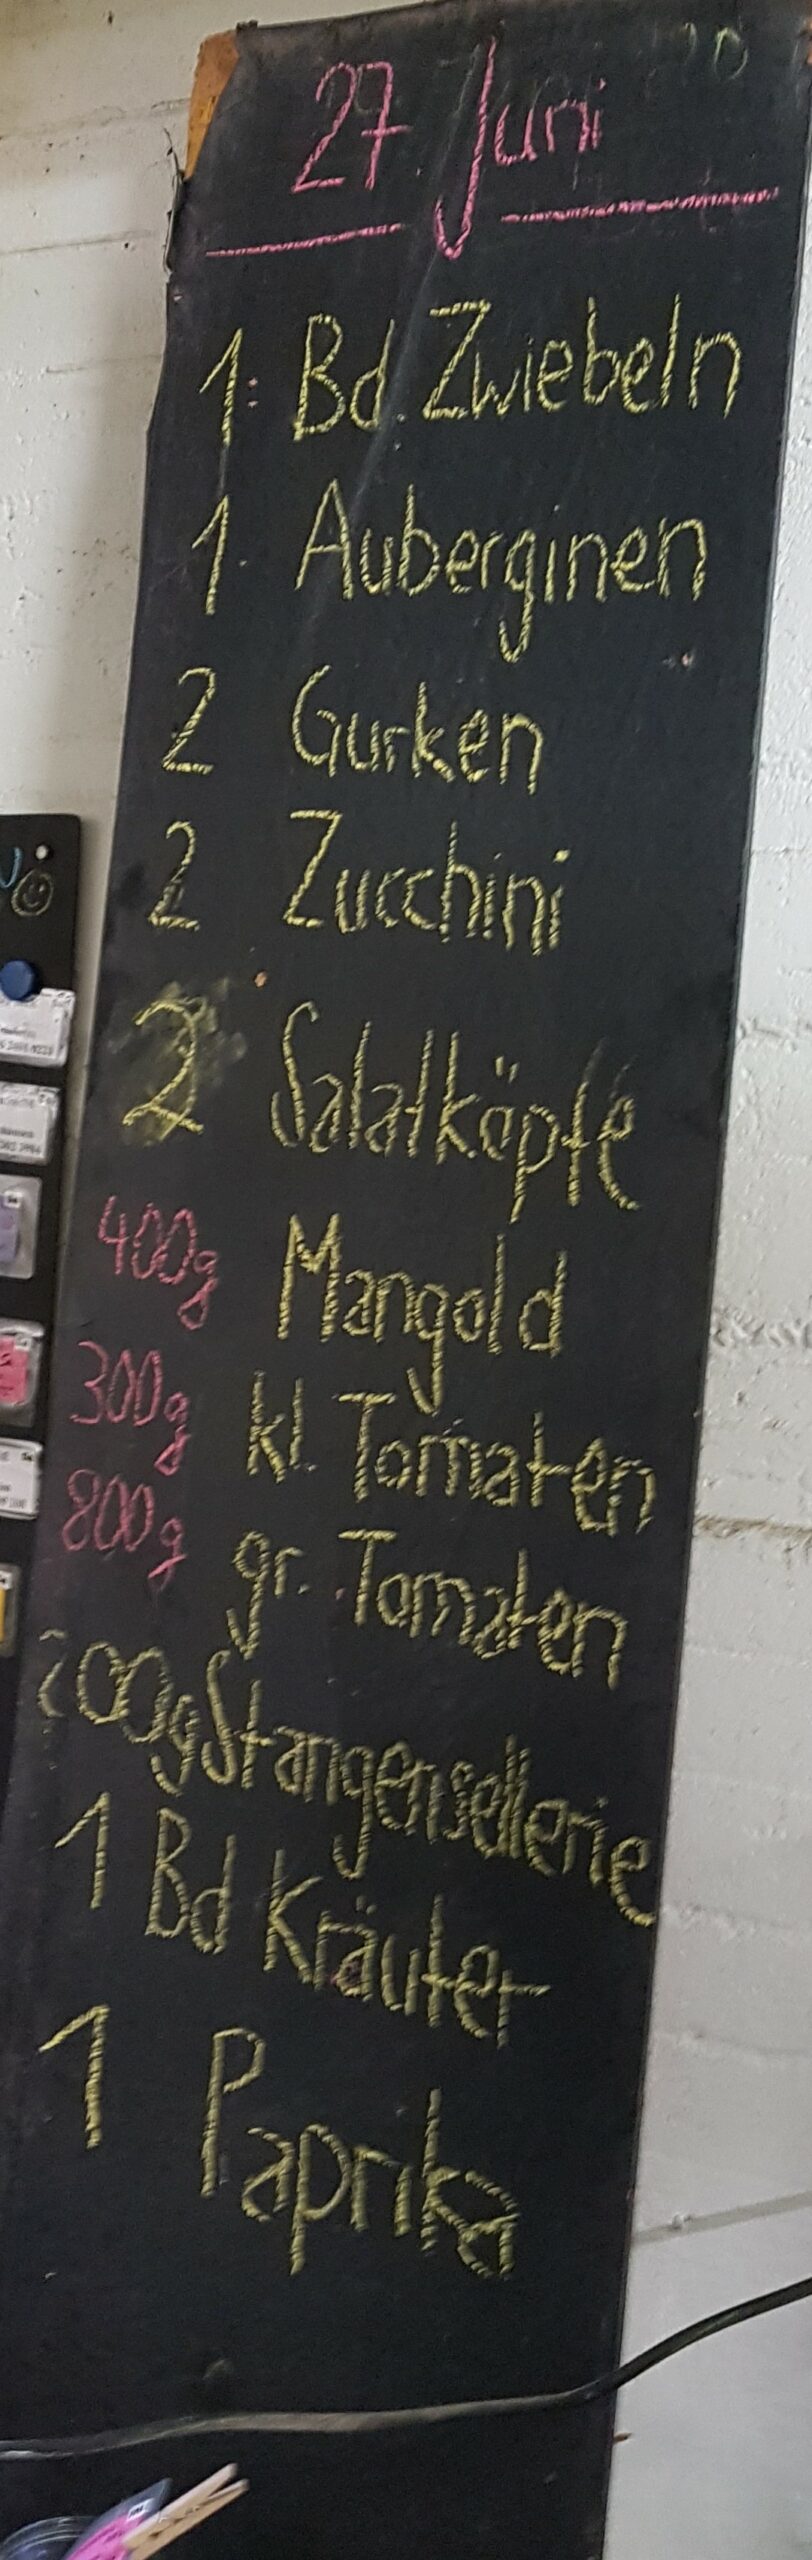 27. Juni
1 Bd. Zwiebeln
1 Auberginen
2 Gurken
2 Zucchini
2 Salatköpfe
400g Mangold
300g kl. Tomaten
800g gr. Tomaten
200g Stangensellerie
1 Bd Kräuter
1 Paprika